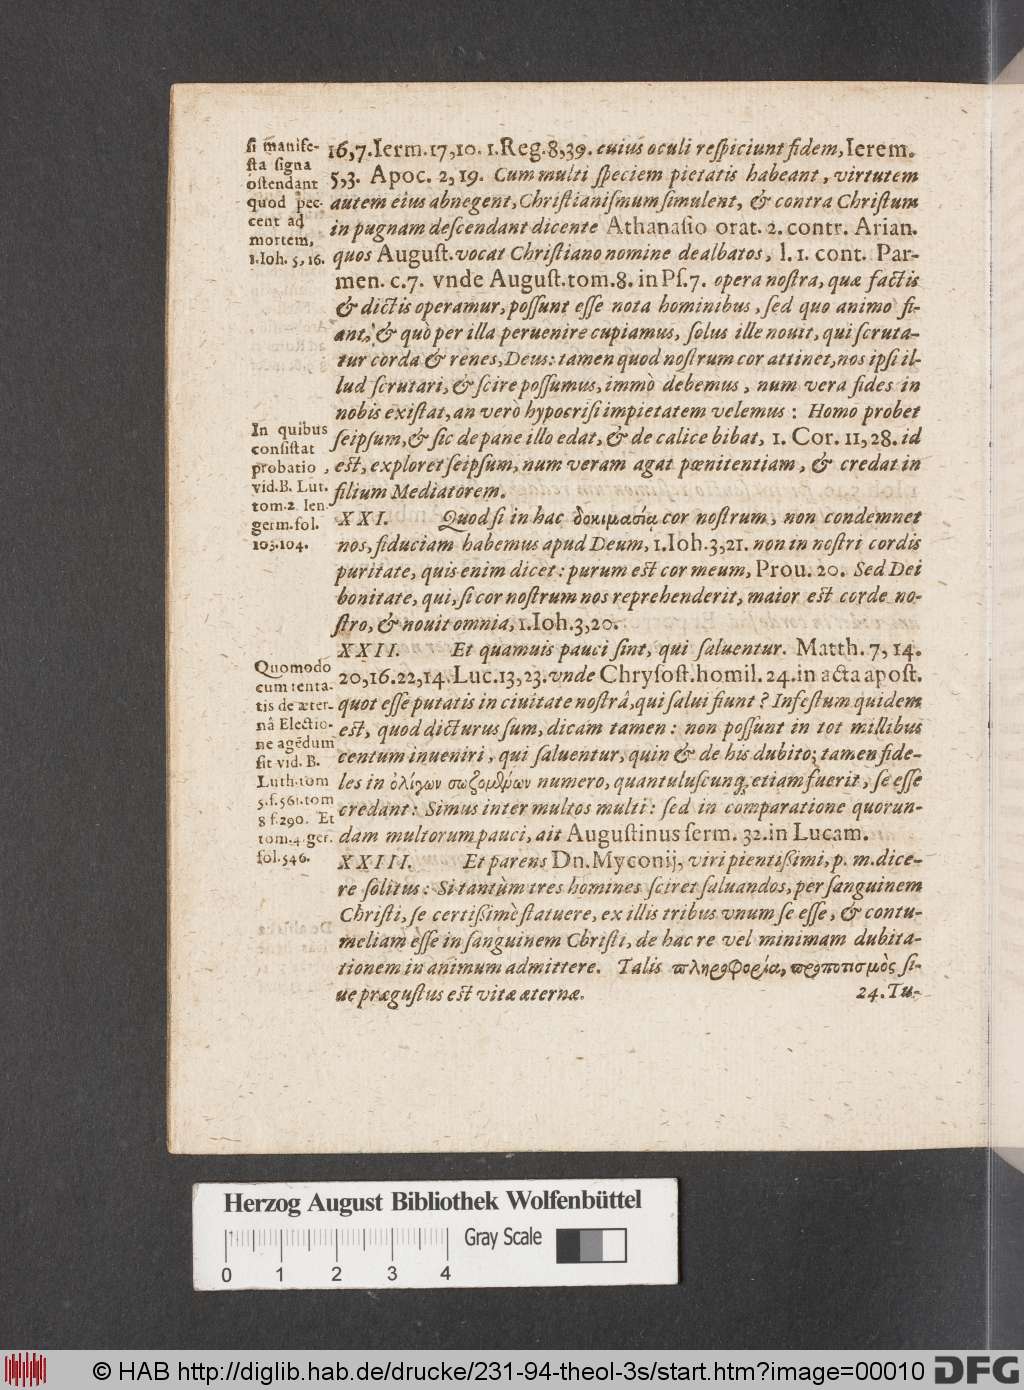 si manife-
sta signa
ostendant
quod pec-
cent ad
mortem,
1.Ioh. 5, 16.
16,7.Ierm.17,10. 1.Reg.8,39. cuius oculi respiciunt fidem, Ierem.
5,3. Apoc. 2,19. Cum multi speciem pietatis habeant, virtutem
autem eius abnegent, Christianismum simulent, & contra Christum
in pugnam descendant dicente Athanasio orat. 2. contr. Arian.
quos August. vocat Christiano nomine dealbatos, l. 1. cont. Par-
men. c.7. vnde August. tom. 8. in Ps. 7. opera nostra, quæ factis
& dictis operamur, possunt esse nota hominibus, sed quo animo fi-
ant, & quò per illa peruenire cupiamus, solus ille nouit, qui scruta-
tur corda & renes, Deus: tamen quod nostrum cor attinet, nos ipsi il-
lud scrutari, & scire possumus, immò debemus, num vera fides in
nobis existat, an verò hypocrisi impietatem velemus: Homo probet
seipsum, & sic de pane illo edat, & de calice bibat, 1. Cor. 11,28. id
est, exploret seipsum, num veram agat pœnitentiam, & credat in
filium Mediatorem.
In quibus
consistat
probatio,
vid. B. Lut.
tom. 2 Ien.
germ. fol.
103.104.
XXI. Quod si in hac δοκιμασία cor nostrum, non condemnet
nos, fiduciam habemus apud Deum, 1. Ioh. 3,21. non in nostri cordis
puritate, quis enim dicet: purum est cor meum, Prou. 20. Sed Dei
bonitate, qui, si cor nostrum nos reprehenderit, maior est corde no-
stro, & nouit omnia, 1. Ioh. 3,20.
XXII. Et quamuis pauci sint, qui saluentur. Matth. 7, 14.
20,16. 22,14. Luc. 13,23. vnde Chrysost. homil. 24. in acta apost.
quot esse putatis in ciuitate nostrâ, qui salui fiunt? Infestum quidem
est, quod dicturus sum, dicam tamen: non possunt in tot millibus
centum inueniri, qui saluentur, quin & de his dubito; tamen fide-
les in ὀλίγων σωζομένων numero, quantuluscunq; etiam fuerit, se esse
credant: Simus inter multos multi: sed in comparatione quorun-
dam multorum pauci, ait Augustinus serm. 32. in Lucam.
Quomodo
cum tenta-
tis de æter-
nâ Electio-
ne agēdum
sit vid. B.
Luth. tom
5. f. 561. tom
8 f. 290. Et
tom. 4. ger.
fol. 546.
XXIII. Et parens Dn. Myconij, viri pientißimi, p. m. dice-
re solitus: Si tantùm tres homines sciret saluandos, per sanguinem
Christi, se certißimè statuere, ex illis tribus vnum se esse, & contu-
meliam esse in sanguinem Christi, de hac re vel minimam dubita-
tionem in animum admittere. Talis πληροφορία, προποτισμὸς si-
ue prægustus est vitæ æternæ.
24. Tu-
Herzog August Bibliothek Wolfenbüttel
Gray Scale
0 1 2 3 4
© HAB http://diglib.hab.de/drucke/231-94-theol-3s/start.htm?image=00010
DFG